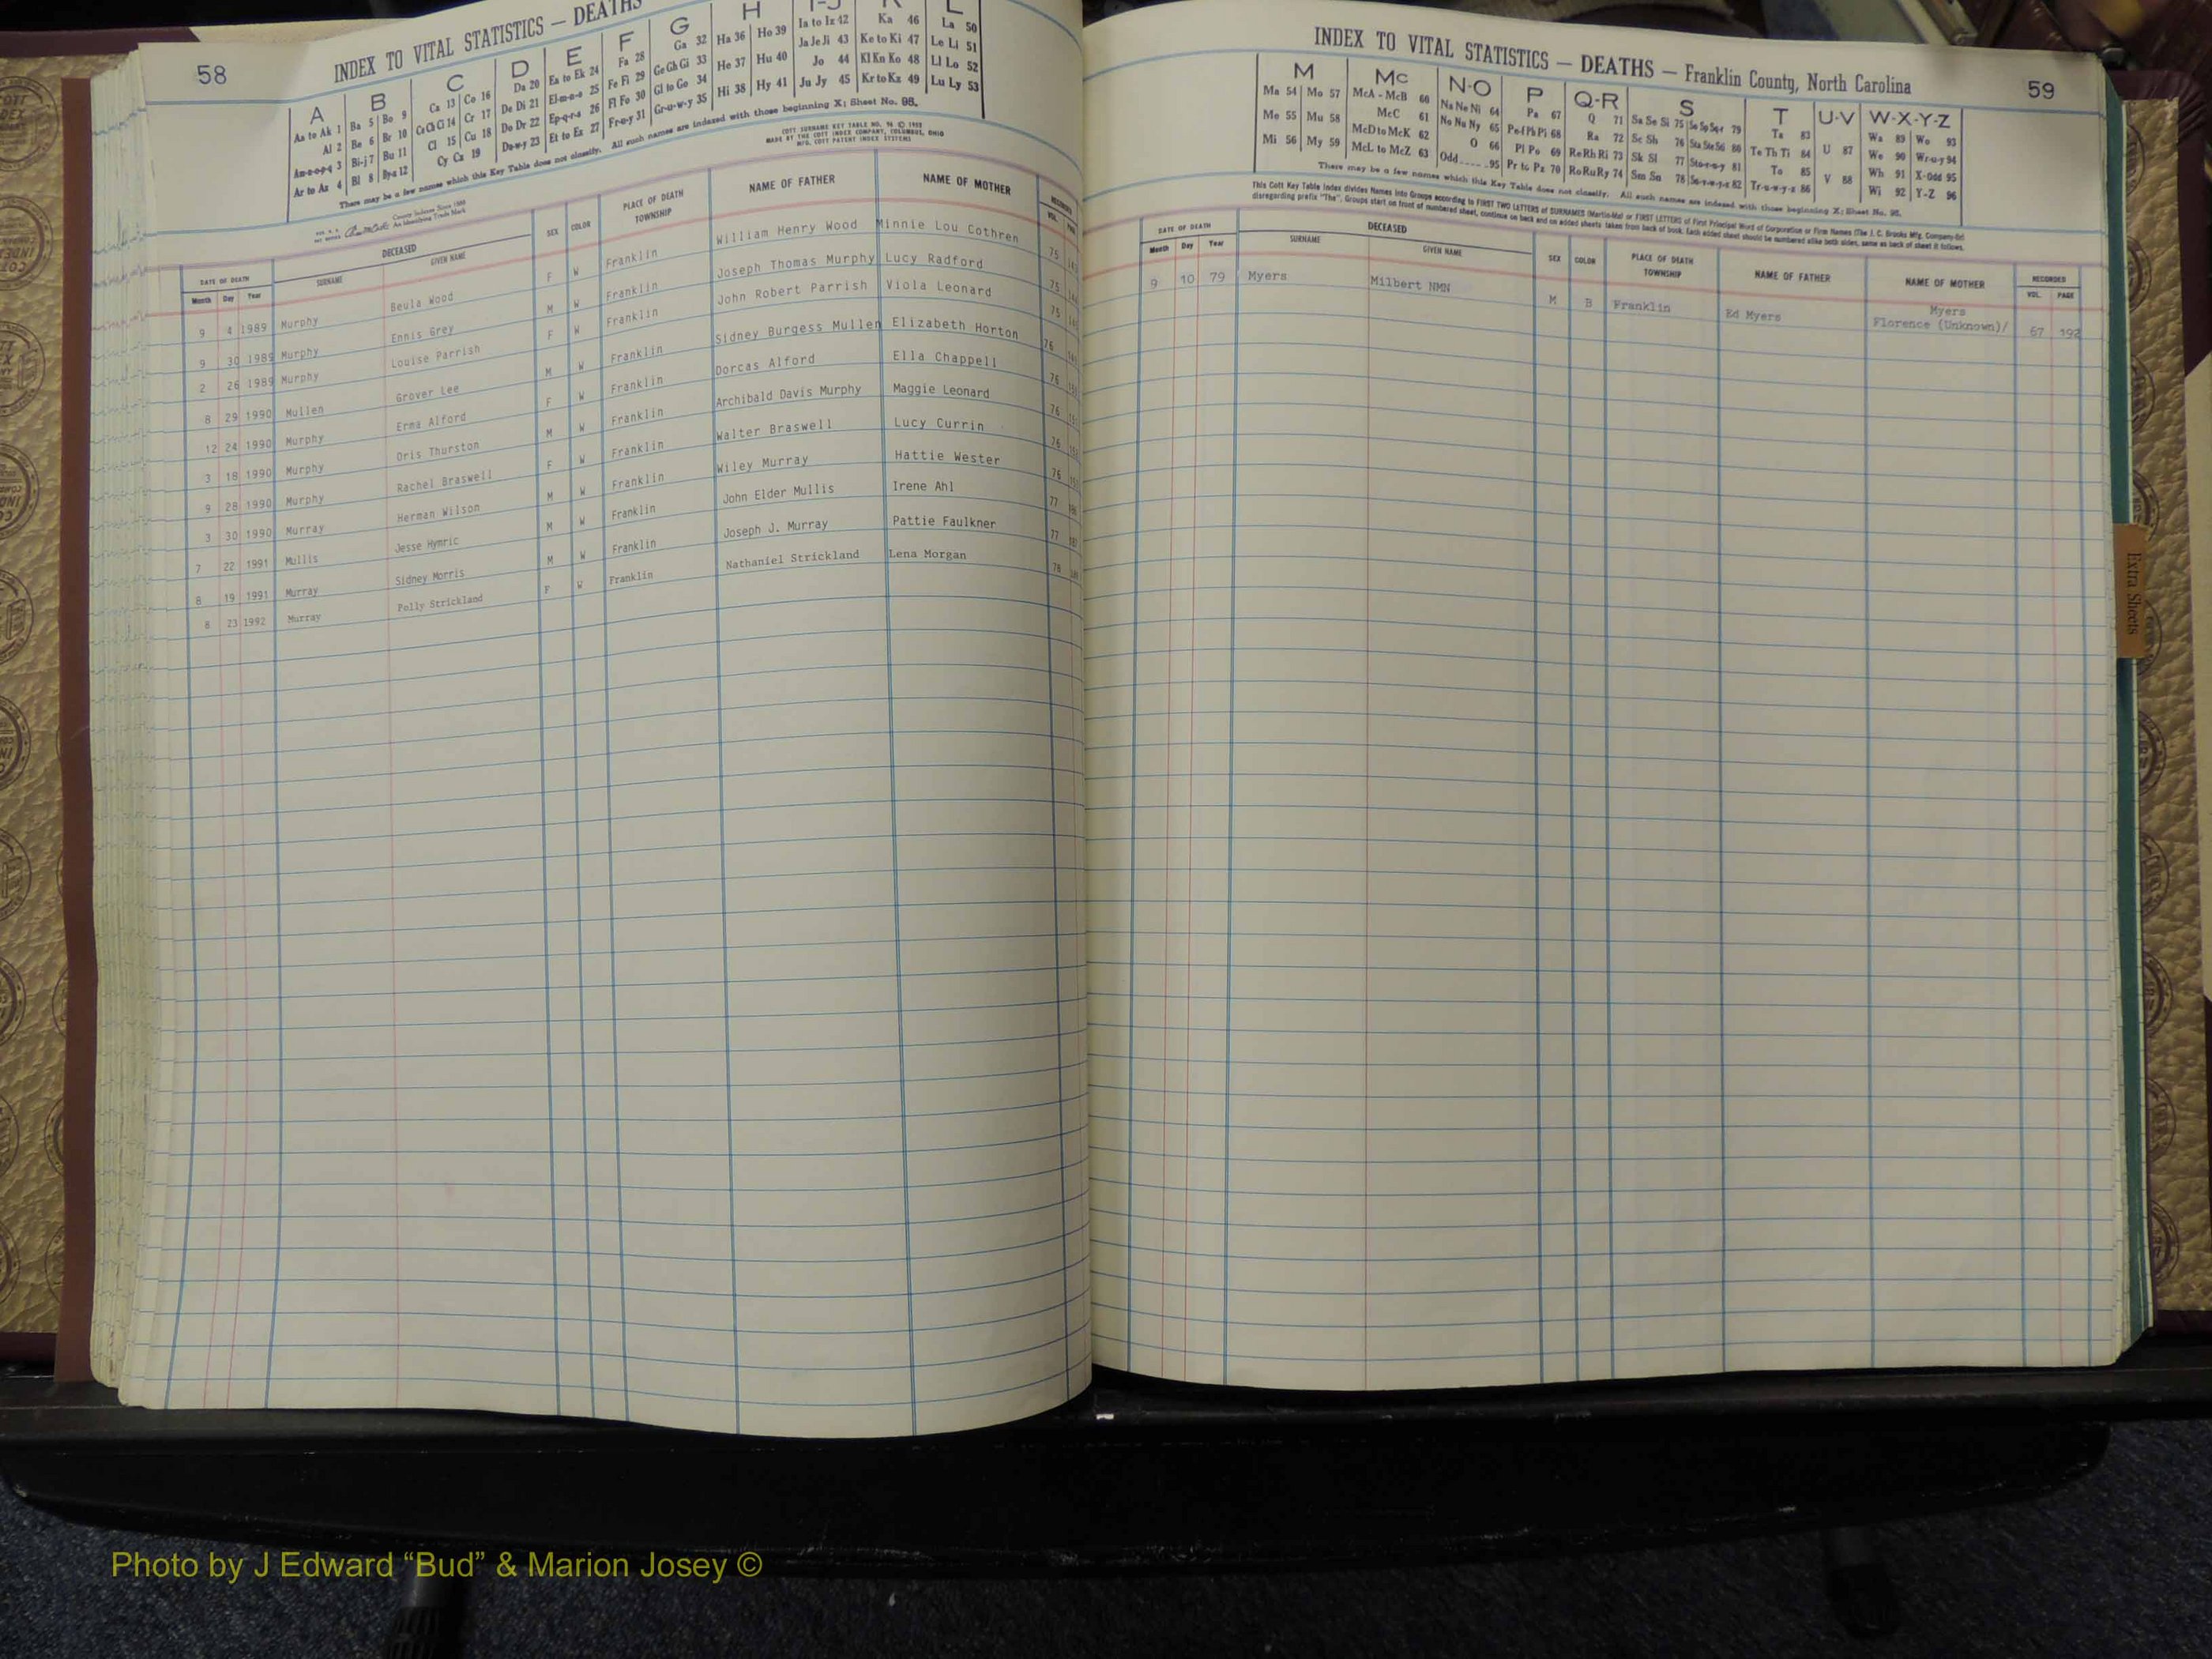 58
INDEX TO VITAL STATISTICS — DEATHS
A B C D E F G H I-J K L
Aa to Ak 1 Ba 5 Bo 9 Ca 13 Co 16 Da 20 Ea to Ek 24 Fa 28 Ga 32 Ha 36 Ho 39 Ia to Iz 42 Ka 46 La 50
Al 2 Be 6 Br 10 Ce Ch Ci 14 Cr 17 De Di 21 El-m-n-o 25 Fe Fi 29 Ge Gh Gi 33 He 37 Hu 40 Ja Je Ji 43 Ke to Ki 47 Le Li 51
Am-n-o-p-q 3 Bi-j 7 Bu 11 Cl 15 Cu 18 Do Dr 22 Ep-q-r-s 26 Fl Fo 30 Gl to Go 34 Hi 38 Hy 41 Jo 44 Kl Kn Ko 48 Ll Lo 52
Ar to Az 4 Bl 8 By-z 12 Cy Cz 19 Du-w-y 23 Et to Ez 27 Fr-u-y 31 Gr-u-w-y 35 Ju Jy 45 Kr to Kz 49 Lu Ly 53
There may be a few names which this Key Table does not classify. All such names are indexed with those beginning X; Sheet No. 95.
COTT SURNAME KEY TABLE NO. 96 ©
MADE BY THE COTT INDEX COMPANY, COLUMBUS, OHIO
MFG. COTT PATENT INDEX SYSTEMS
County Indexes Since 1888
An Identifying Trade Mark
DATE OF DEATH DECEASED SEX COLOR PLACE OF DEATH TOWNSHIP NAME OF FATHER NAME OF MOTHER RECORDED
Month Day Year SURNAME GIVEN NAME VOL. PAGE
9 4 1989 Murphy Beula Wood F W Franklin William Henry Wood Minnie Lou Cothren 75
9 30 1989 Murphy Ennis Grey M W Franklin Joseph Thomas Murphy Lucy Radford 75
2 26 1989 Murphy Louise Parrish F W Franklin John Robert Parrish Viola Leonard 75
8 29 1990 Mullen Grover Lee M W Franklin Sidney Burgess Mullen Elizabeth Horton 76
12 24 1990 Murphy Erma Alford F W Franklin Dorcas Alford Ella Chappell 76
3 18 1990 Murphy Oris Thurston M W Franklin Archibald Davis Murphy Maggie Leonard 76
9 28 1990 Murphy Rachel Braswell F W Franklin Walter Braswell Lucy Currin 76
3 30 1990 Murray Herman Wilson M W Franklin Wiley Murray Hattie Wester 76
7 22 1991 Mullis Jesse Hymric M W Franklin John Elder Mullis Irene Ahl 77
8 19 1991 Murray Sidney Morris M W Franklin Joseph J. Murray Pattie Faulkner 77
8 23 1992 Murray Polly Strickland F W Franklin Nathaniel Strickland Lena Morgan 78
INDEX TO VITAL STATISTICS — DEATHS — Franklin County, North Carolina
59
M Mc N-O P Q-R S T U-V W-X-Y-Z
Ma 54 Mo 57 McA - McB 60 Na Ne Ni 64 Pa 67 Q 71 Sa Se Si 75 So Sp Sq-r 79 Ta 83 U 87 Wa 89 Wo 93
Me 55 Mu 58 McC 61 No Nu Ny 65 Pe-f Ph Pi 68 Ra 72 Sc Sh 76 Sta Ste Sti 80 Te Th Ti 84 V 88 We 90 Wr-u-y 94
Mi 56 My 59 McD to McK 62 O 66 Pl Po 69 Re Rh Ri 73 Sk Sl 77 Sto-r-u-y 81 To 85 Wh 91 X-Odd 95
McL to McZ 63 Odd.....95 Pr to Pz 70 Ro Ru Ry 74 Sm Sn 78 Su-v-w-y-z 82 Tr-u-w-y-z 86 Wi 92 Y-Z 96
There may be a few names which this Key Table does not classify. All such names are indexed with those beginning X; Sheet No. 95.
This Cott Key Table Index divides Names into Groups according to FIRST TWO LETTERS of SURNAMES (Martin-Ma) or FIRST LETTERS of First Principal Word of Corporation or Firm Names (The J. C. Brooks Mfg. Company-Br)
disregarding prefix "The". Groups start on front of numbered sheet, continue on back and on added sheets taken from back of book. Each added sheet should be numbered alike both sides, same as back of sheet it follows.
DATE OF DEATH DECEASED SEX COLOR PLACE OF DEATH TOWNSHIP NAME OF FATHER NAME OF MOTHER RECORDED
Month Day Year SURNAME GIVEN NAME VOL. PAGE
9 10 79 Myers Milbert NMN M B Franklin Ed Myers Myers
Florence (Unknown)/ 67 192
Extra Sheets
Photo by J Edward “Bud” & Marion Josey ©